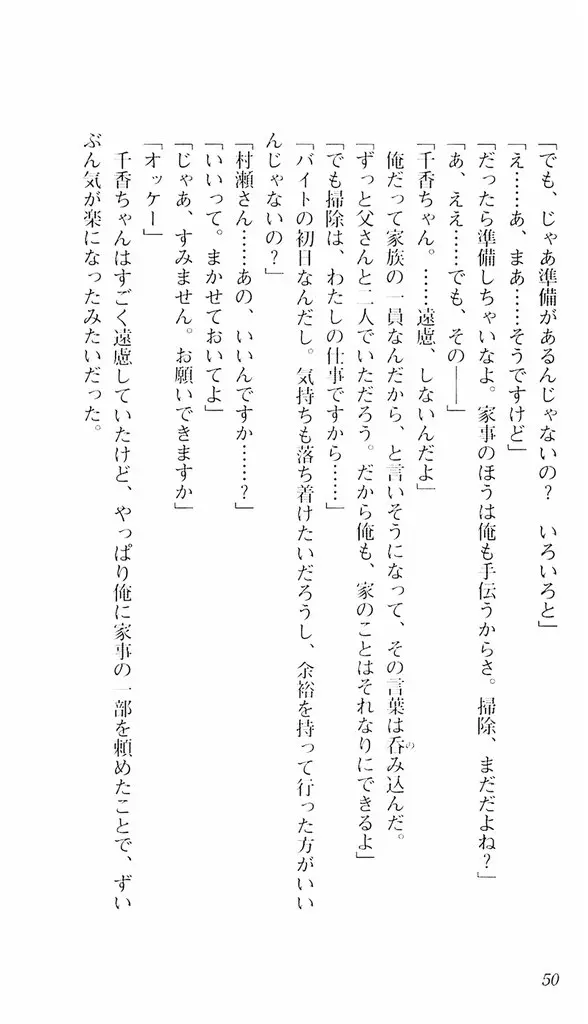 「でも、じゃあ準備があるんじゃないの？　いろいろと」
「え……あ、まあ……そうですけど」
「だったら準備しちゃいなよ。家事のほうは俺も手伝うからさ。掃除、まだだよね？」
「あ、ええ……でも、その――」
「千香ちゃん。……遠慮、しないんだよ」
　俺だって家族の一員なんだから、と言いそうになって、その言葉は呑み込んだ。
「ずっと父さんと二人でいただろう。だから俺も、家のことはそれなりにできるよ」
「でも掃除は、わたしの仕事ですから……」
「バイトの初日なんだし。気持ちも落ち着けたいだろうし、余裕を持って行った方がいい
んじゃないの？」
「村瀬さん……あの、いいんですか……？」
「いいって。まかせておいてよ」
「じゃあ、すみません。お願いできますか」
「オッケー」
　千香ちゃんはすごく遠慮していたけど、やっぱり俺に家事の一部を頼めたことで、ずい
ぶん気が楽になったみたいだった。
50